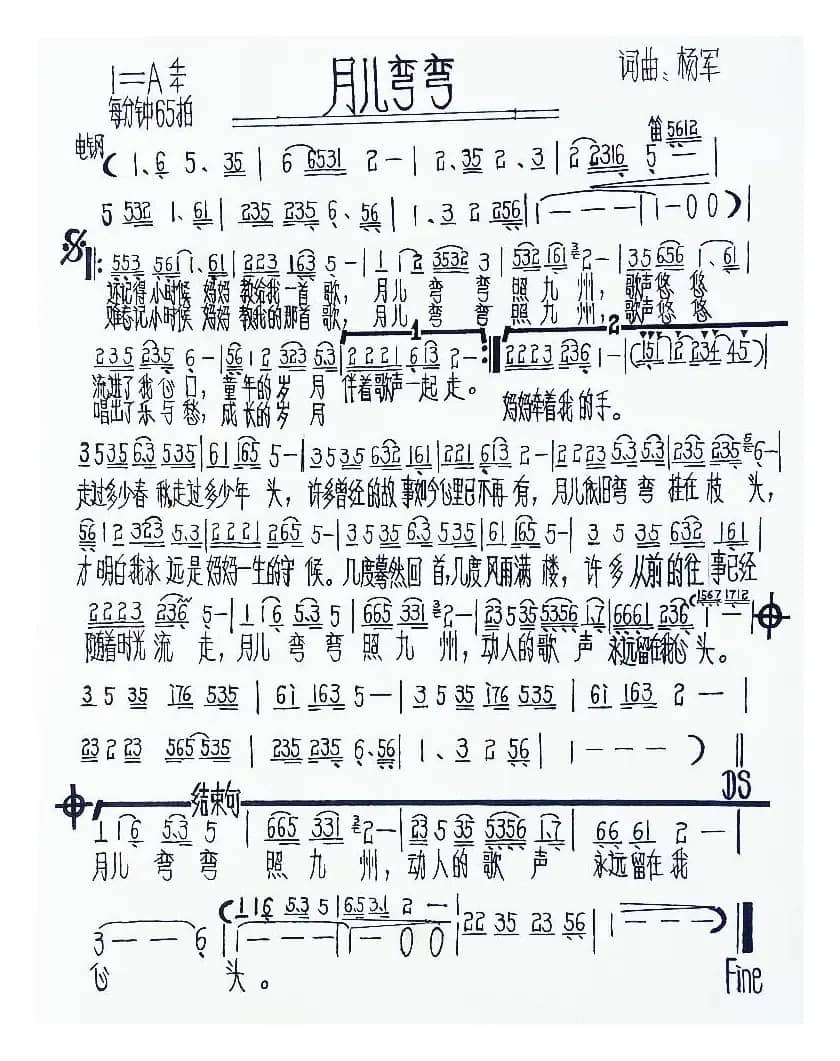 1=A 4/4
月儿弯弯
词曲、杨军
每分钟65拍
笛 5612
电钢
( 1、6 5、35 | 6 6531 2 — | 2、35 2、3 | 2 2316 5 — |
5 532 1、61 | 235 235 6、56 | 1、3 2 256 | 1 — — — | 1 — 0 0 ) |
553 561 1、61 | 223 163 5 — | 1 1 2 3532 3 | 532 161 2 — | 35 656 1、61 |
还记得 小时候 妈妈 教给我一首 歌， 月儿 弯 弯 照 九 州， 歌声悠 悠
难忘记小时候 妈妈 教我的那首 歌， 月儿 弯 弯 照 九 州， 歌声悠 悠
1 2
235 235 6 — | 56 1 2 323 5.3 | 2 2 2 1 613 2 — :‖ 2223 236 1 — |
流进了我 心 口， 童年的岁 月 伴着歌声一起 走。 妈妈牵着我 的手。
唱出了乐 与 愁， 成长的岁 月
3535 6.3 535 | 61 165 5 — | 3535 632 161 | 221 613 2 — | 2 2 23 5.3 5.3 | 235 235 6 — |
走过多少春 秋,走过多少年 头， 许多曾经的故 事如今心里已不再 有， 月儿依旧弯 弯 挂在 枝 头，
56 1 2 323 5.3 | 2 2 2 1 265 5 — | 3 5 35 6.3 535 | 61 165 5 — | 3 5 35 632 161 |
才明白我永 远是妈妈一生的守 候。几度蓦然回 首,几度风雨满 楼， 许 多 从前的往 事已经
2223 236 5 — | 1 16 5.3 5 | 665 331 2 — | 23 535 5356 1.7 | 6661 236 1 — |
1567 1712
随着时光 流 走， 月儿 弯 弯 照 九 州， 动人的歌 声 永远留在我心 头。
3 5 35 176 535 | 61 163 5 — | 3 5 35 176 535 | 61 163 2 — |
23 2 23 565 535 | 235 235 6、56 | 1、3 2 56 | 1 — — — ) ‖
DS
结束句
1 16 5.3 5 | 665 331 2 — | 23 5 35 5356 1.7 | 66 61 2 — |
月儿 弯 弯 照 九 州， 动人的 歌 声 永远留在 我
( 1 16 5.3 5 | 6.5 3.1 2 — |
3 — — 6 | 1 — — — | 1 — 0 0 | 22 35 23 56 | 1 — — — ) ‖
心 头。
Fine